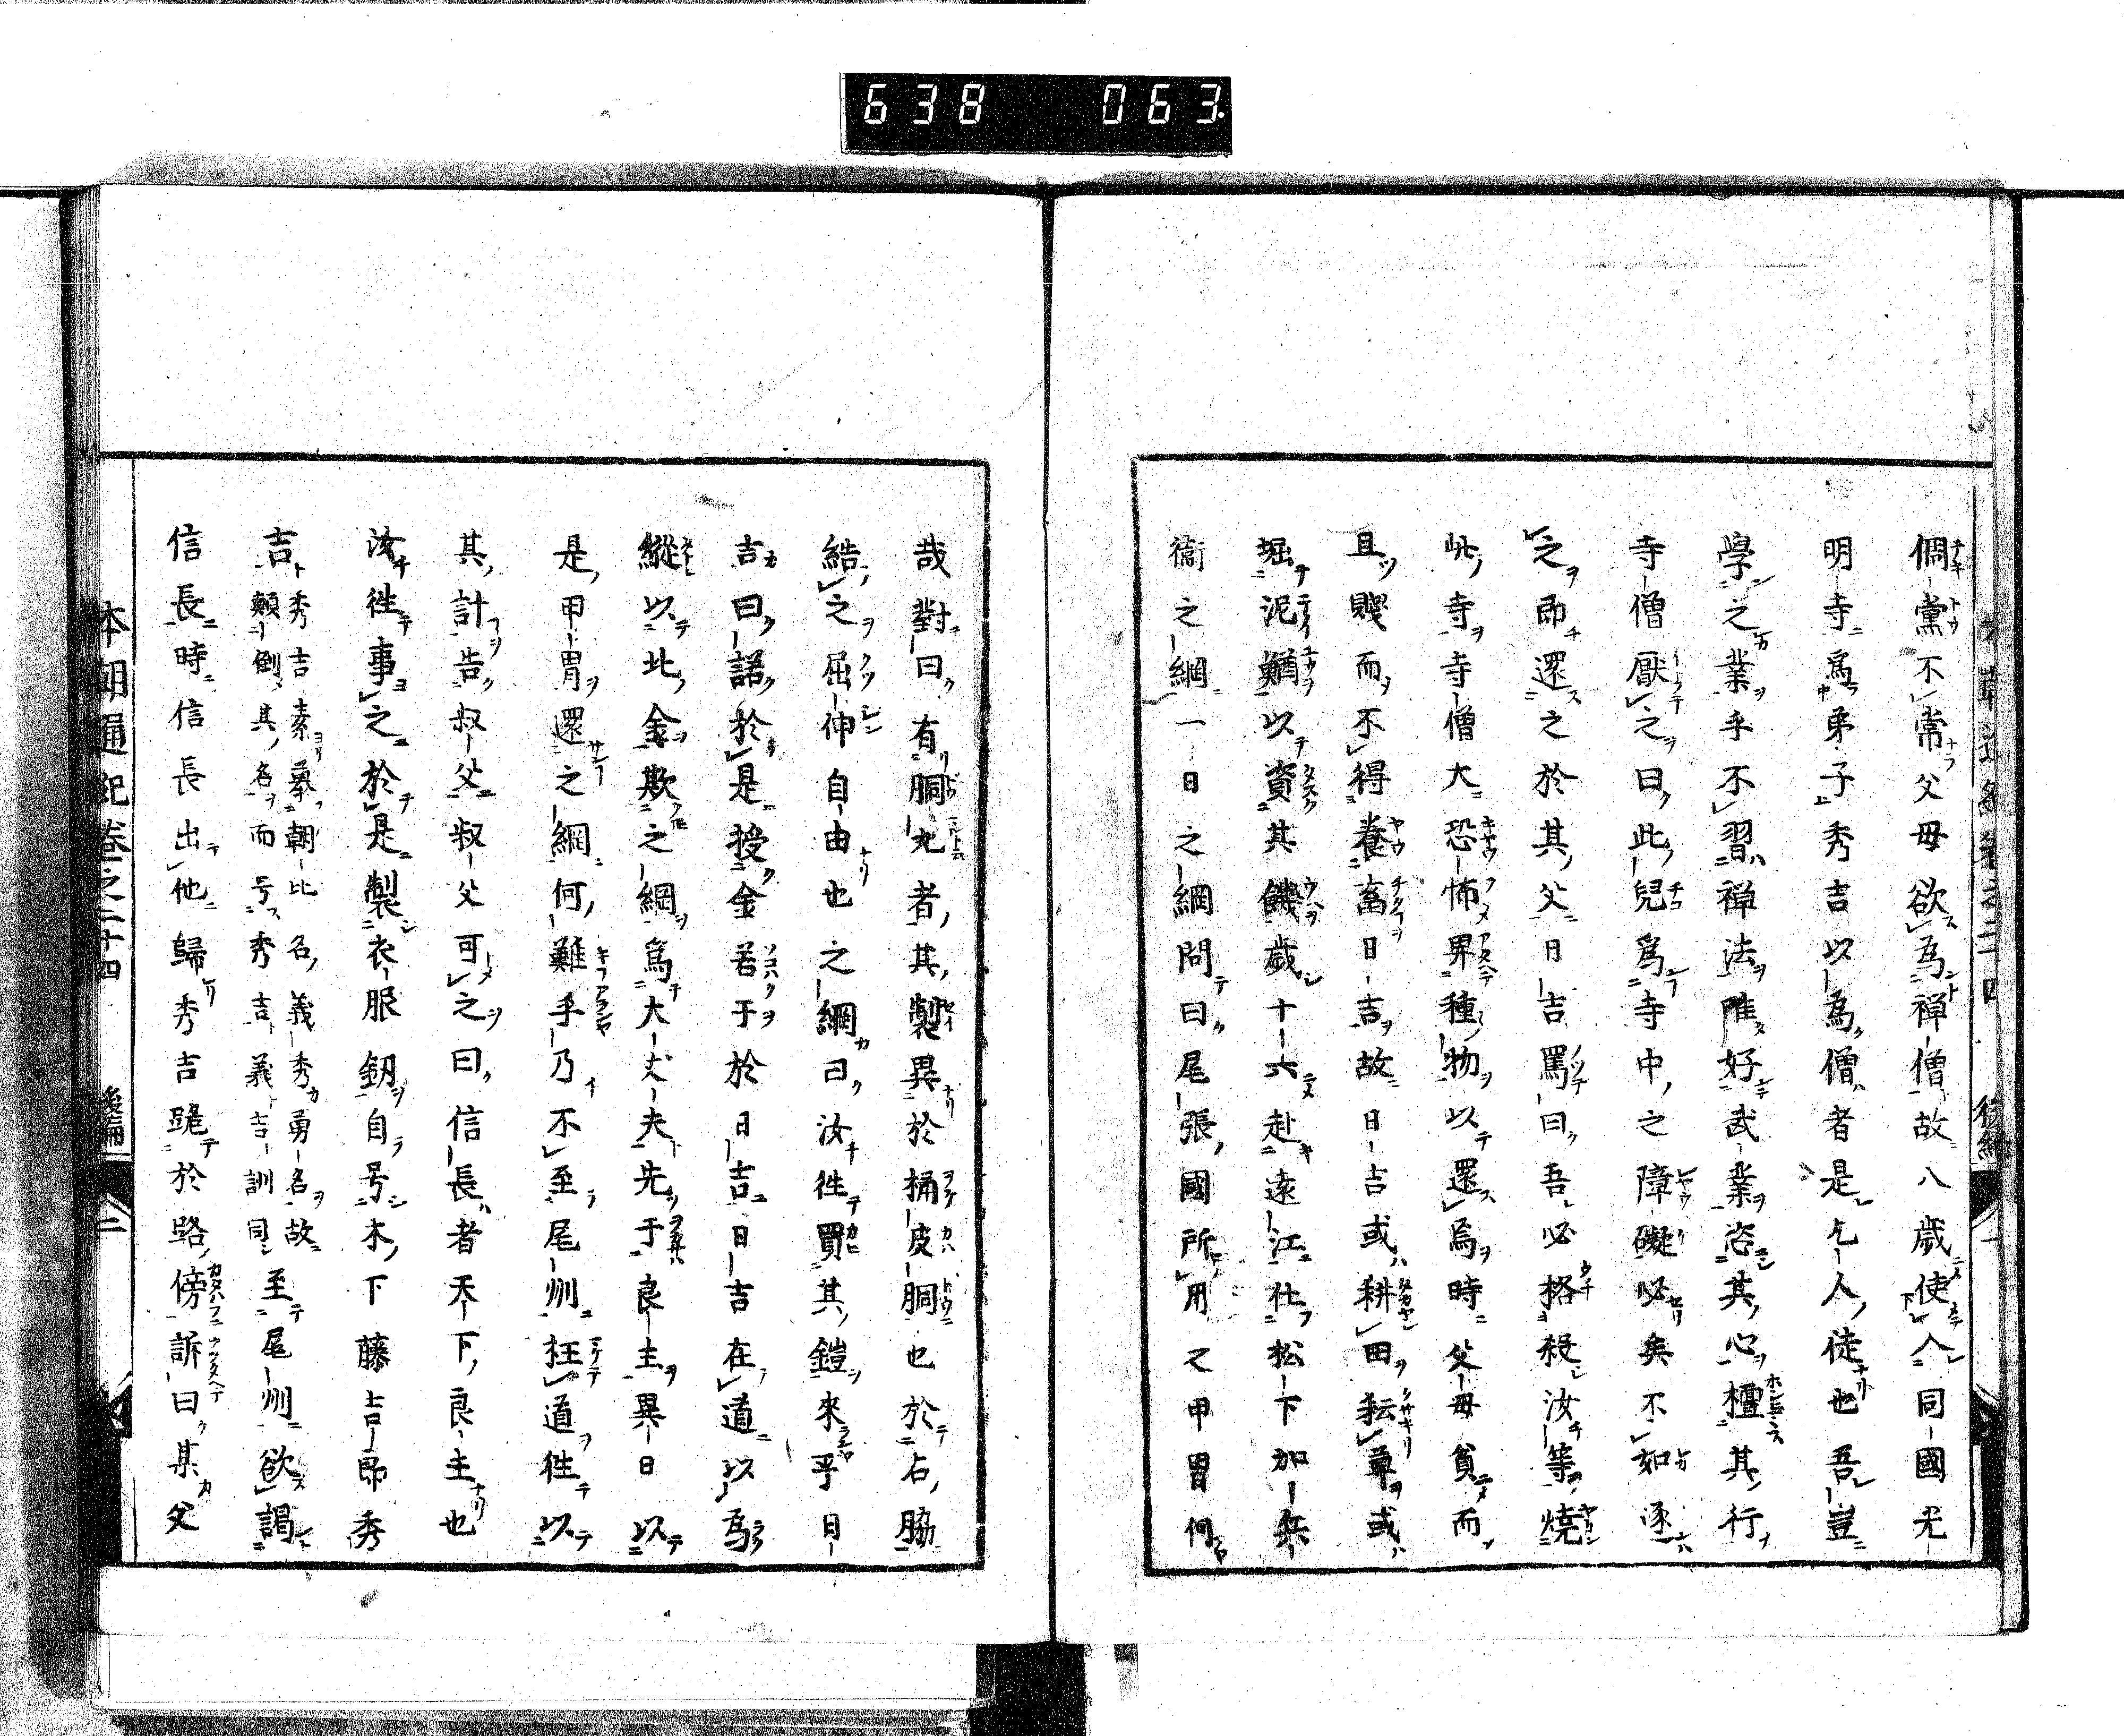 638 063
倜黨不常父母欲為禅僧故八歲使入同國光
明寺爲弟子秀吉以爲僧者是乞人徒也吾豈
學之業乎不習禅法唯好武業恣其心檀其行
寺僧厭之曰此兒爲寺中之障礙必矣不如逐
之即還之於其父日吉罵曰吾必格殺汝等燒
此寺寺僧大恐怖畀種物以還爲時父母貧而
且賤而不得養畜日吉故日吉或耕田耘草或
堀泥鰌以資其饑歲十六赴遠江仕松下加兵
衞之綱一日之綱問曰尾張國所用之甲冑何
哉對曰有胴丸者其製異於桶皮胴也於右脇
結之屈伸自由也之綱曰汝徃買其鎧來乎日
吉曰諾於是授金若于於日吉日吉在道以爲
縱以此金欺之綱爲大丈夫先于良主異日以
是甲冑還之綱何難乎乃不至尾州枉道徃以
其計告叔父叔父可之曰信長者天下良主也
汝徃事之於是製衣服釼自号木下藤吉郎秀
吉秀吉素羣朝比名義秀勇名故顛倒其名而号秀吉義吉訓同至尾州欲謁
信長時信長出他歸秀吉跪於路傍訴曰某父
本朝通紀卷之二十四 後編 二